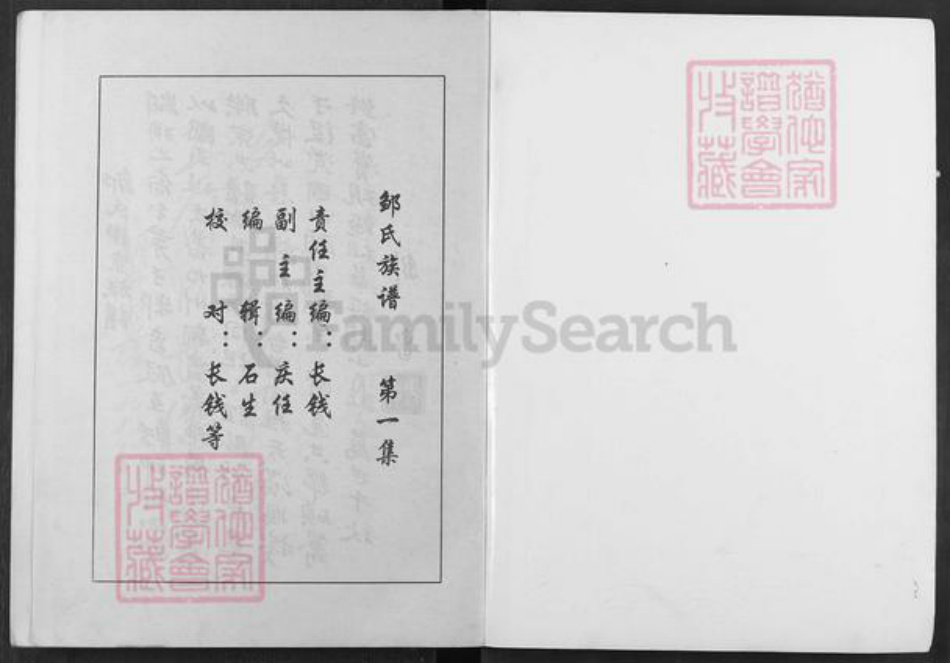 邹氏族谱 第一集
责任主编：长钱
副主编：庆任
编辑：石生
校对：长钱等
猶他家
譜學會
收藏
猶他家
譜學會
收藏
FamilySearch